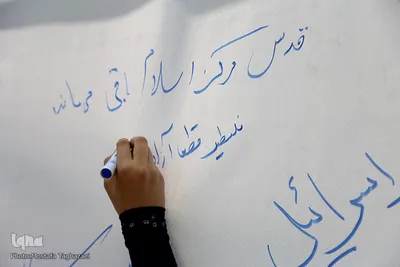 قدس مرکز اسلام باقی می‌ماند
فلسطین قطعا آزاد
اسرائیل
iqna
Photo:Mostafa Taghazaei